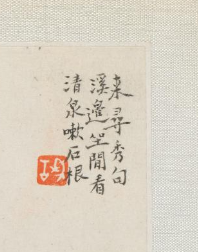 来尋秀句
溪邊坐閒看
清泉嗽石根